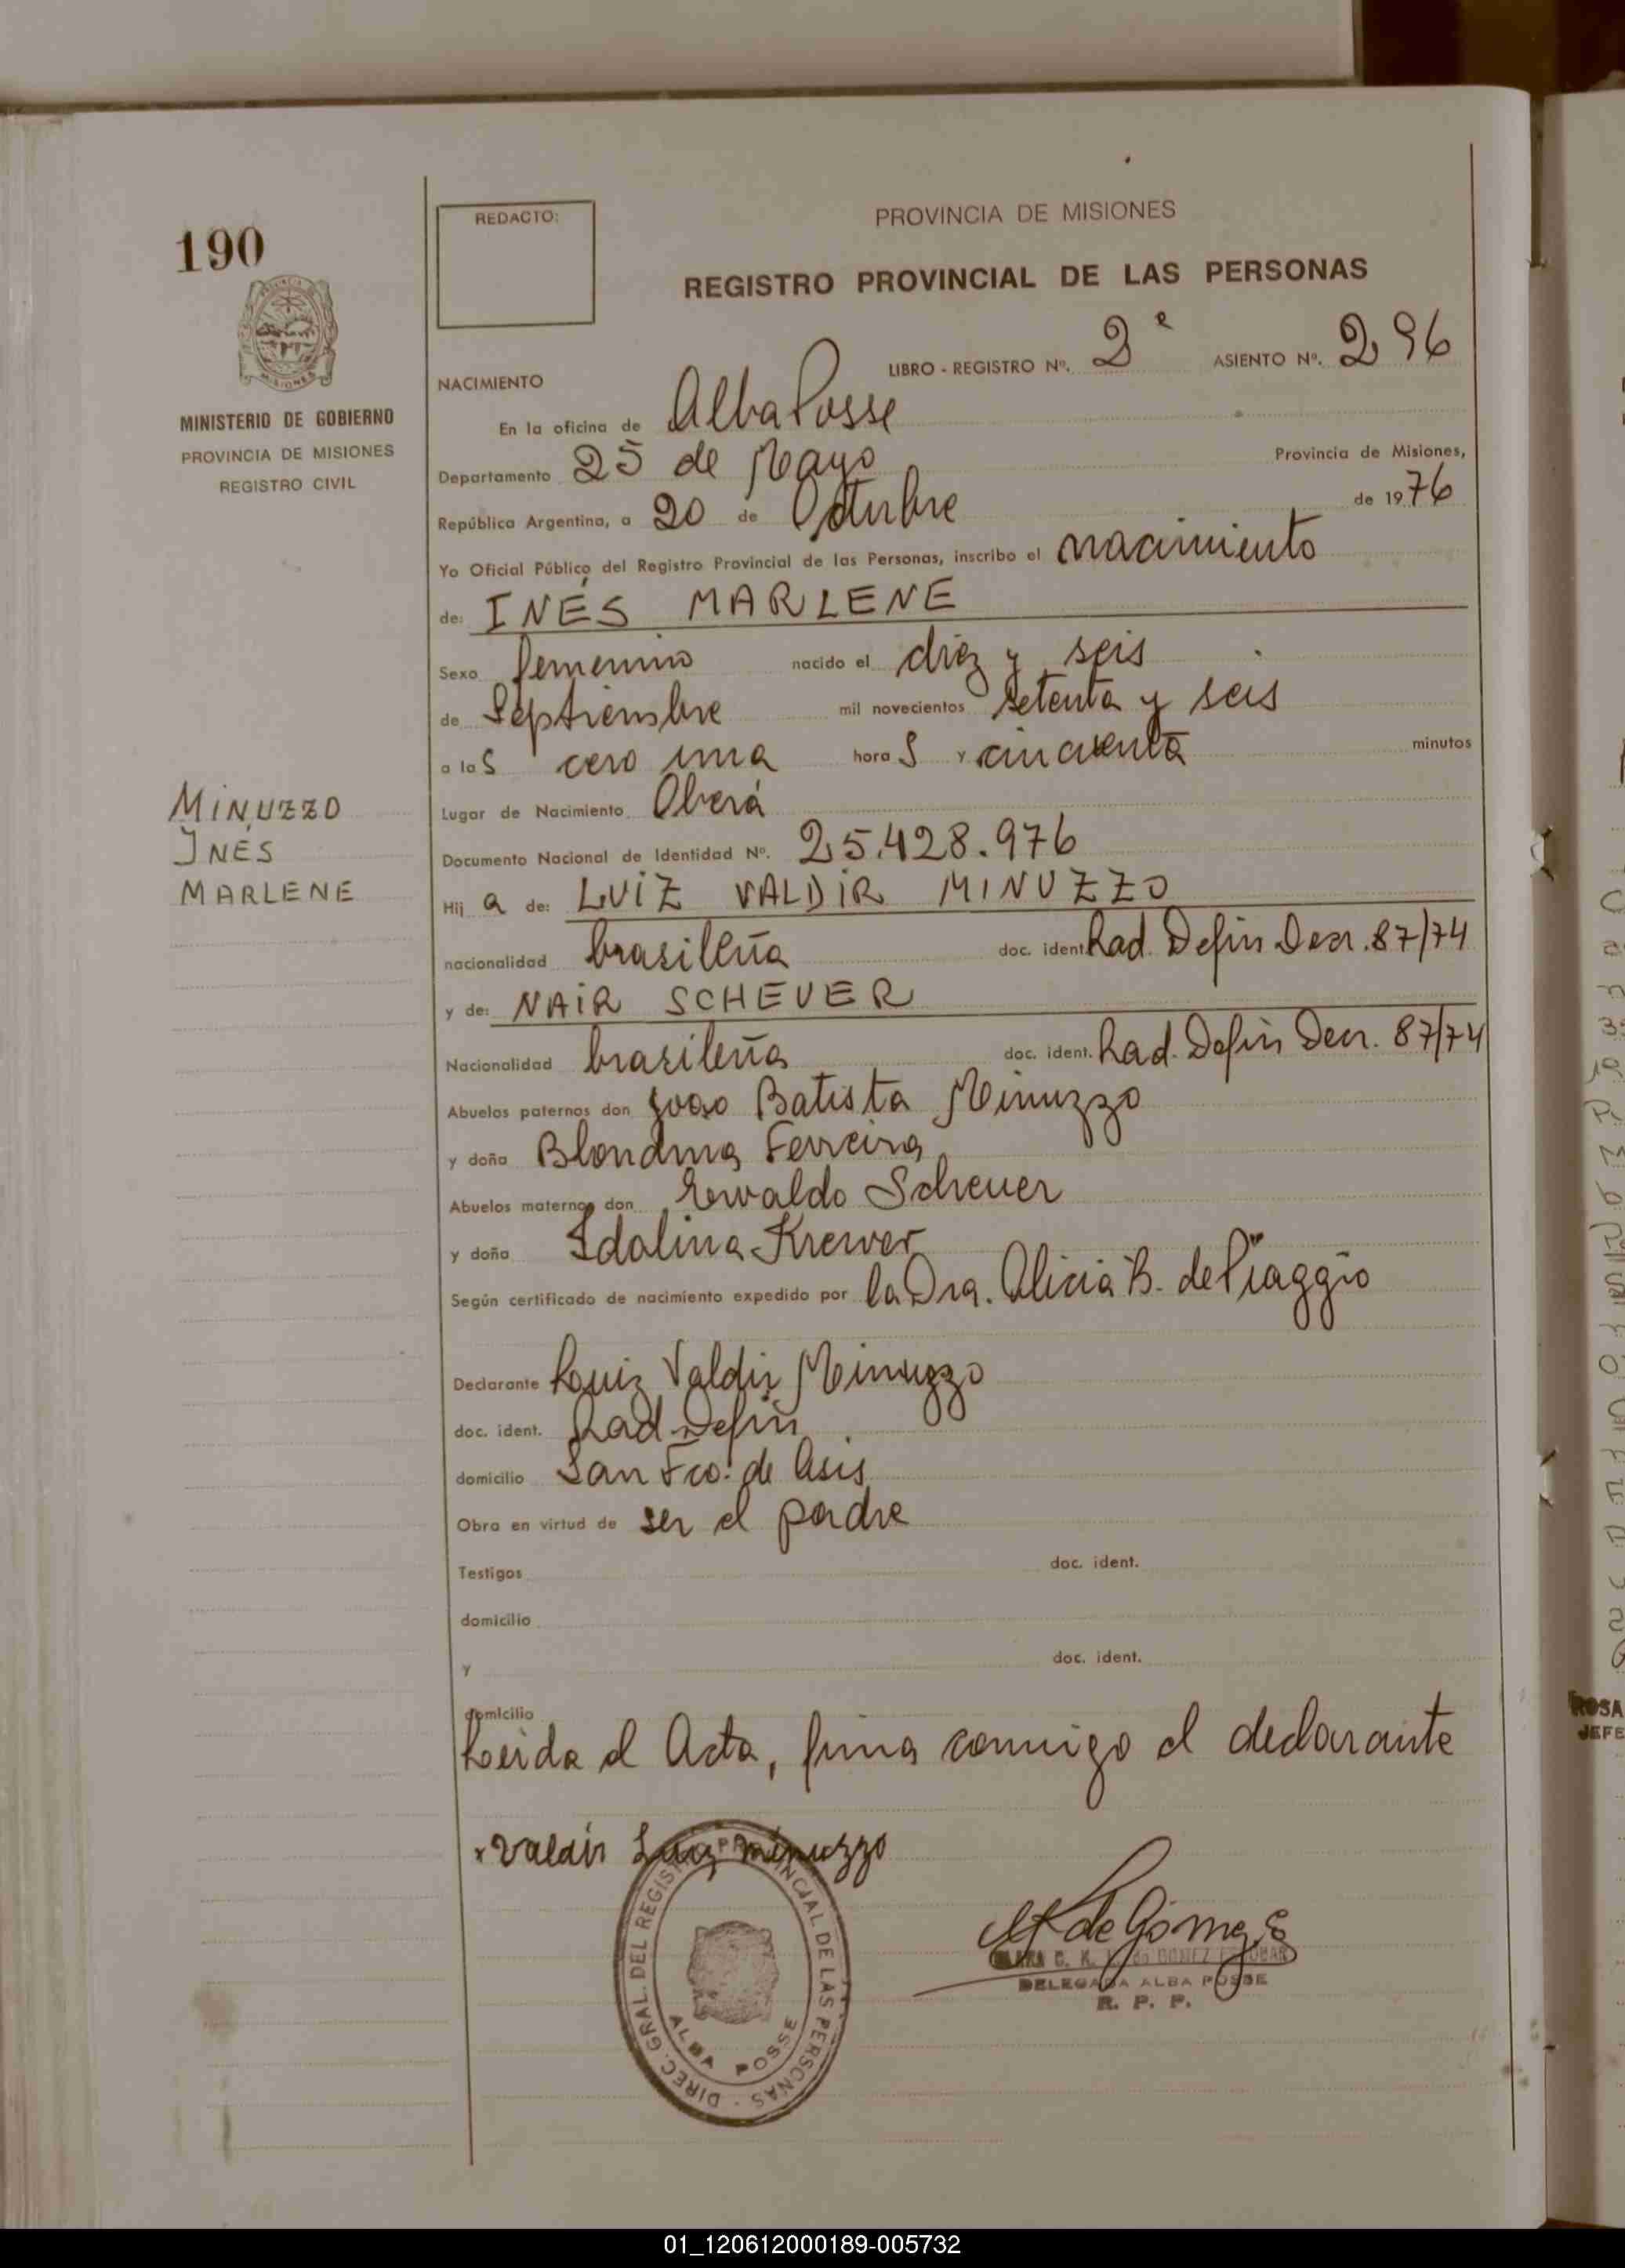 190
MINISTERIO DE GOBIERNO
PROVINCIA DE MISIONES
REGISTRO CIVIL
MINUZZO
INES
MARLENE
REDACTO:
PROVINCIA DE MISIONES
REGISTRO PROVINCIAL DE LAS PERSONAS
LIBRO - REGISTRO Nº. 2º ASIENTO Nº. 296
NACIMIENTO
En la oficina de Alba Posse
Departamento 25 de Mayo Provincia de Misiones,
República Argentina, a 20 de Octubre de 1976
Yo Oficial Público del Registro Provincial de las Personas, inscribo el nacimiento
de: INÉS MARLENE
Sexo femenino nacido el diez y seis
de Septiembre mil novecientos setenta y seis
a las cero una horas y cincuenta minutos
Lugar de Nacimiento Oberá
Documento Nacional de Identidad Nº. 25.428.976
Hija de: LUIZ VALDIR MINUZZO
nacionalidad brasileña doc. ident. Rad. Defin Decr. 87/74
y de: NAIR SCHEUER
Nacionalidad brasileña doc. ident. Rad. Defin Decr. 87/74
Abuelos paternos don Joao Batista Minuzzo
y doña Blondina Ferreira
Abuelos maternos don Erwaldo Scheuer
y doña Idalina Krewer
Según certificado de nacimiento expedido por la Dra. Alicia B. de Piaggio
Declarante Luiz Valdir Minuzzo
doc. ident. Rad. Defin
domicilio San Fco. de Asis
Obra en virtud de ser el padre
Testigos doc. ident.
domicilio
y doc. ident.
domicilio
Leida el Acta, firma conmigo el declarante
x Valdir Luiz Minuzzo
DIREC. GRAL. DEL REGISTRO PROVINCIAL DE LAS PERSONAS
ALBA POSSE
de Gomez
DELEGADA ALBA POSSE
R. P. P.
ROSA
JEFE
01_120612000189-005732